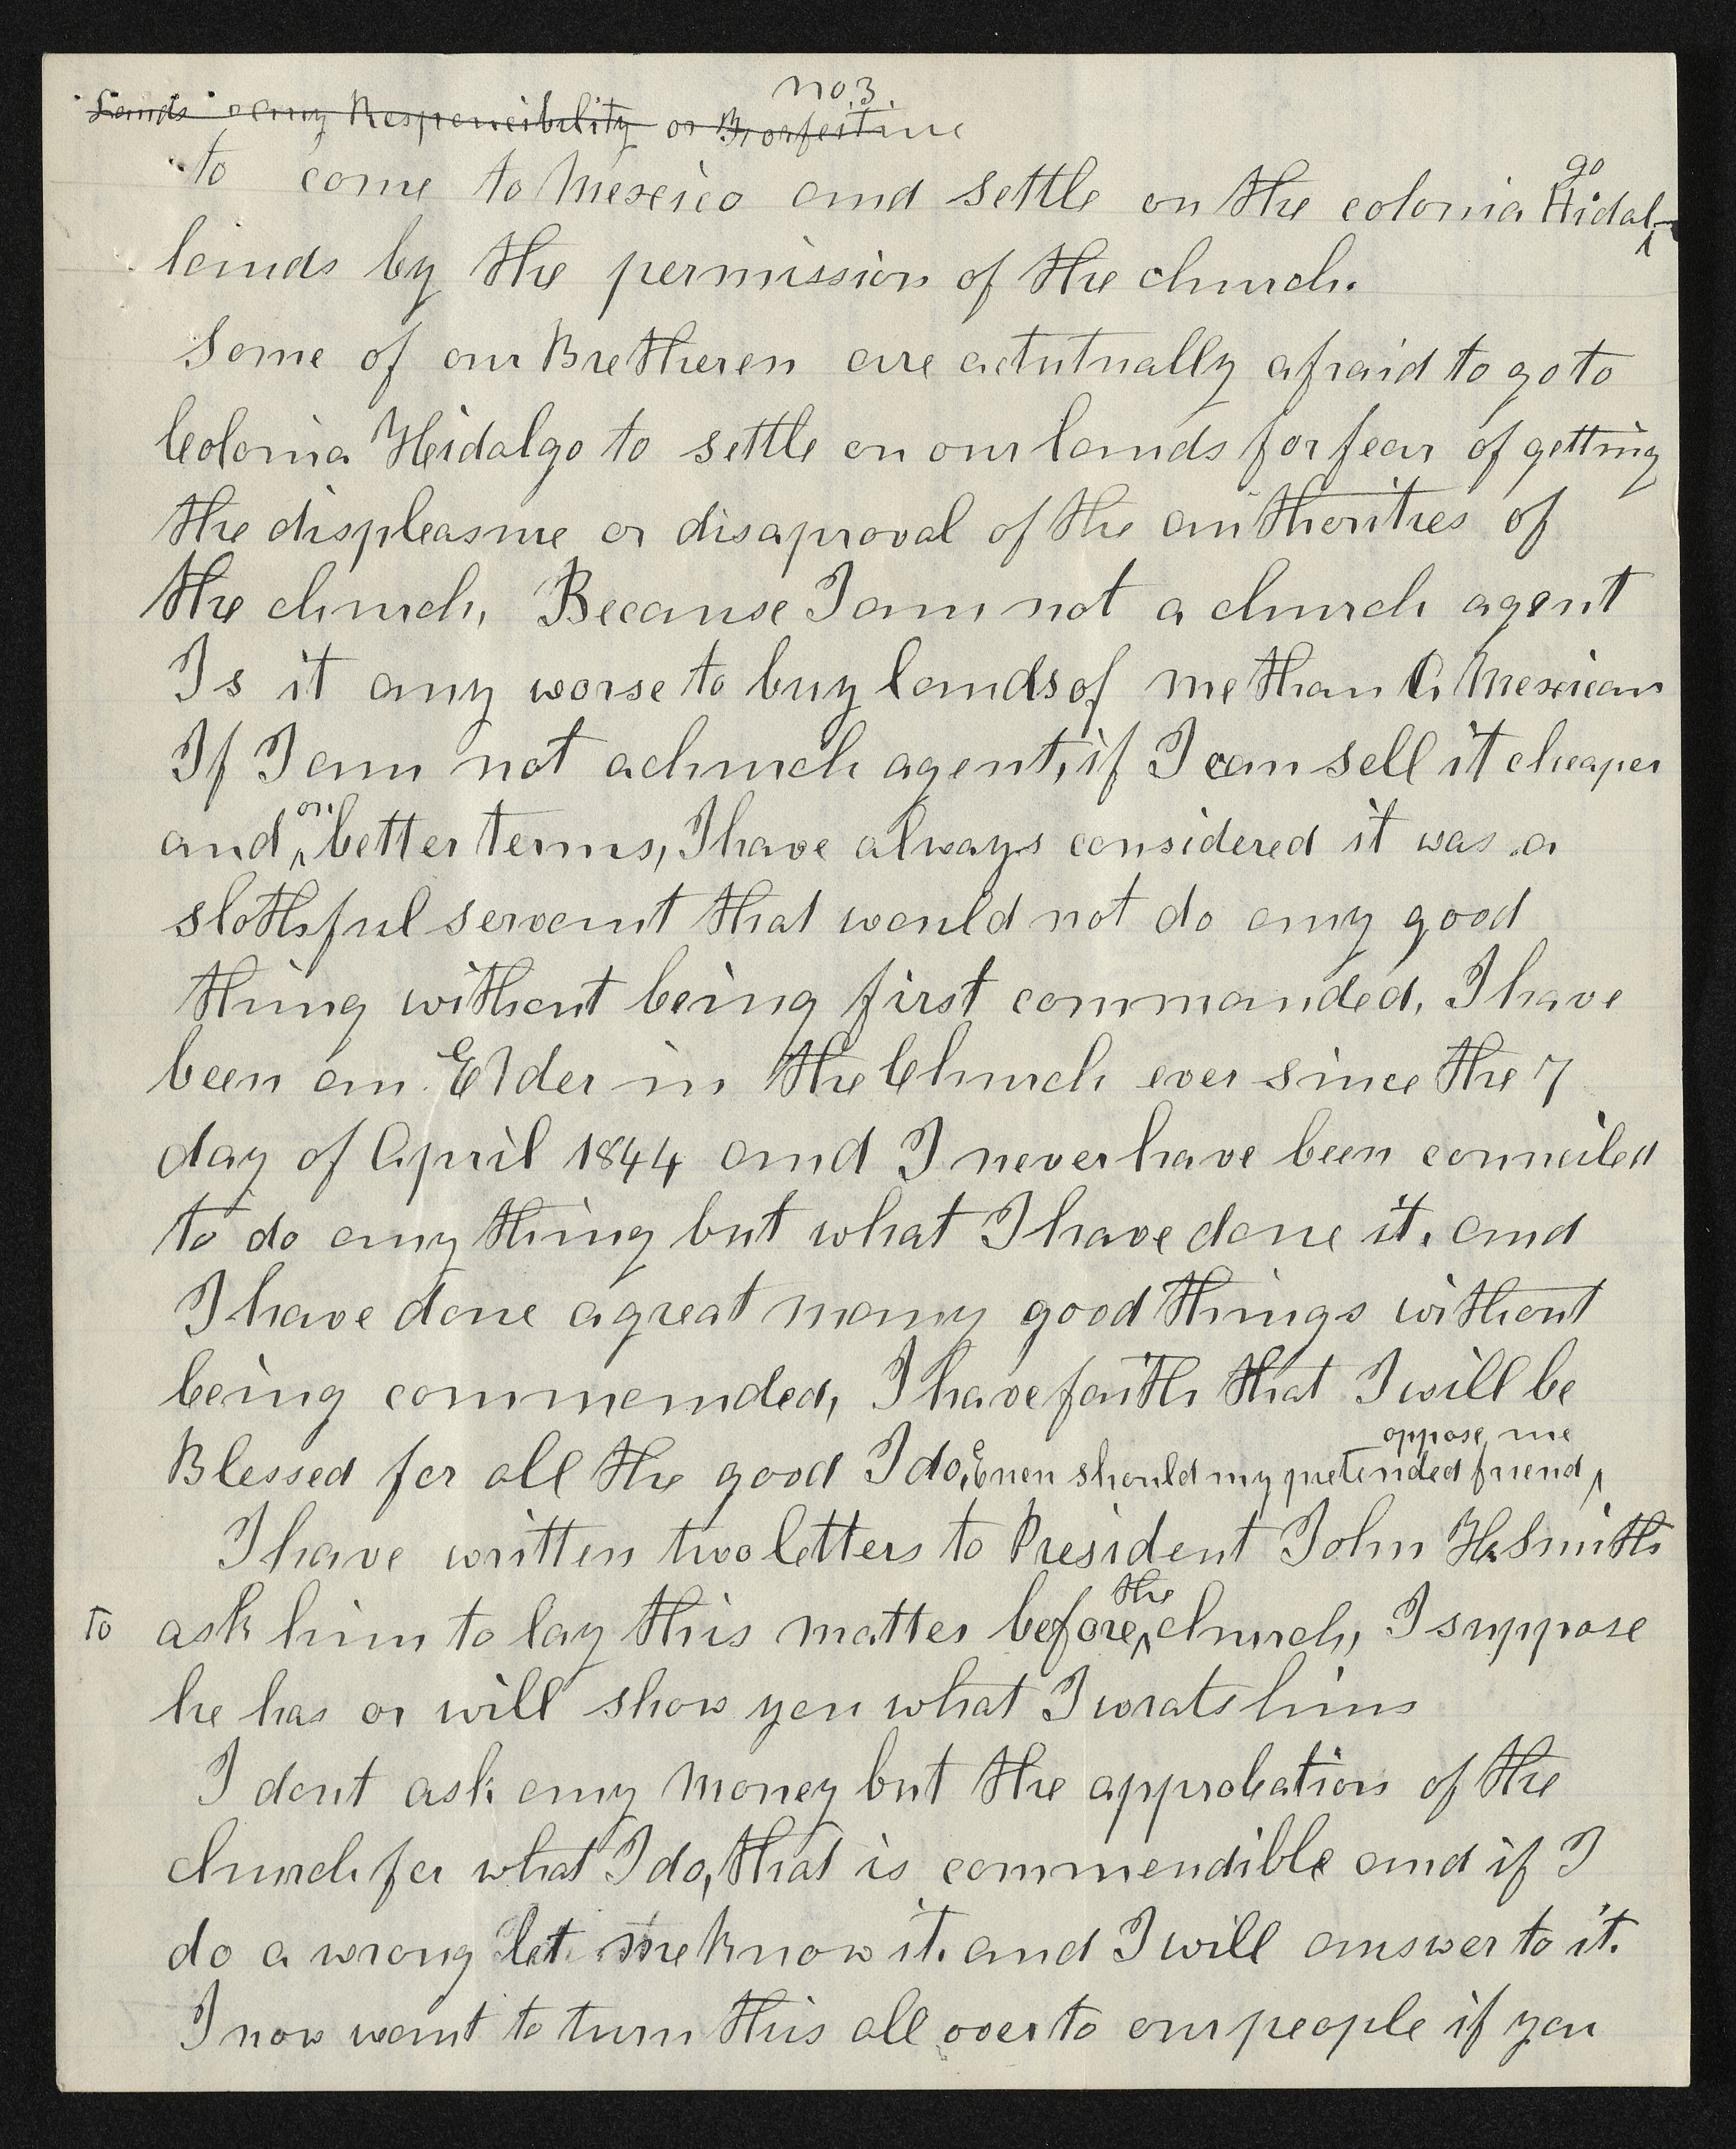 no. 3
Lands any Responcibility or
to come to Mexico and settle on the colonia Hidalgo
lands by the permission of the church.
Some of our Bretheren are actutually afraid to go to
Colonia Heidalgo to settle on our lands for fear of getting
the displeasure or disaproval of the authorities of
the church, Because I am not a church agent
Is it any worse to buy lands of me than A Mexican
If I am not a church agent, if I can sell it cheaper
and on better terms, I have always considered it was a
slothful servant that would not do any good
thing without being first commanded, I have
been an Elder in the Church ever since the 7
day of April 1844 and I never have been counciled
to do any thing but what I have done it. and
I have done a great many good things without
being commended, I have faith that I will be
Blessed for all the good I do, Even should my pretended friend oppose me
I have written two letters to President John H. Smith
to ask him to lay this matter before the church, I suppose
he has or will show you what I wrats him
I dont ask any money but the approbation of the
church for what I do, that is commendible and if I
do a wrong let me know it. and I will answer to it.
I now want to turn this all over to our people if you